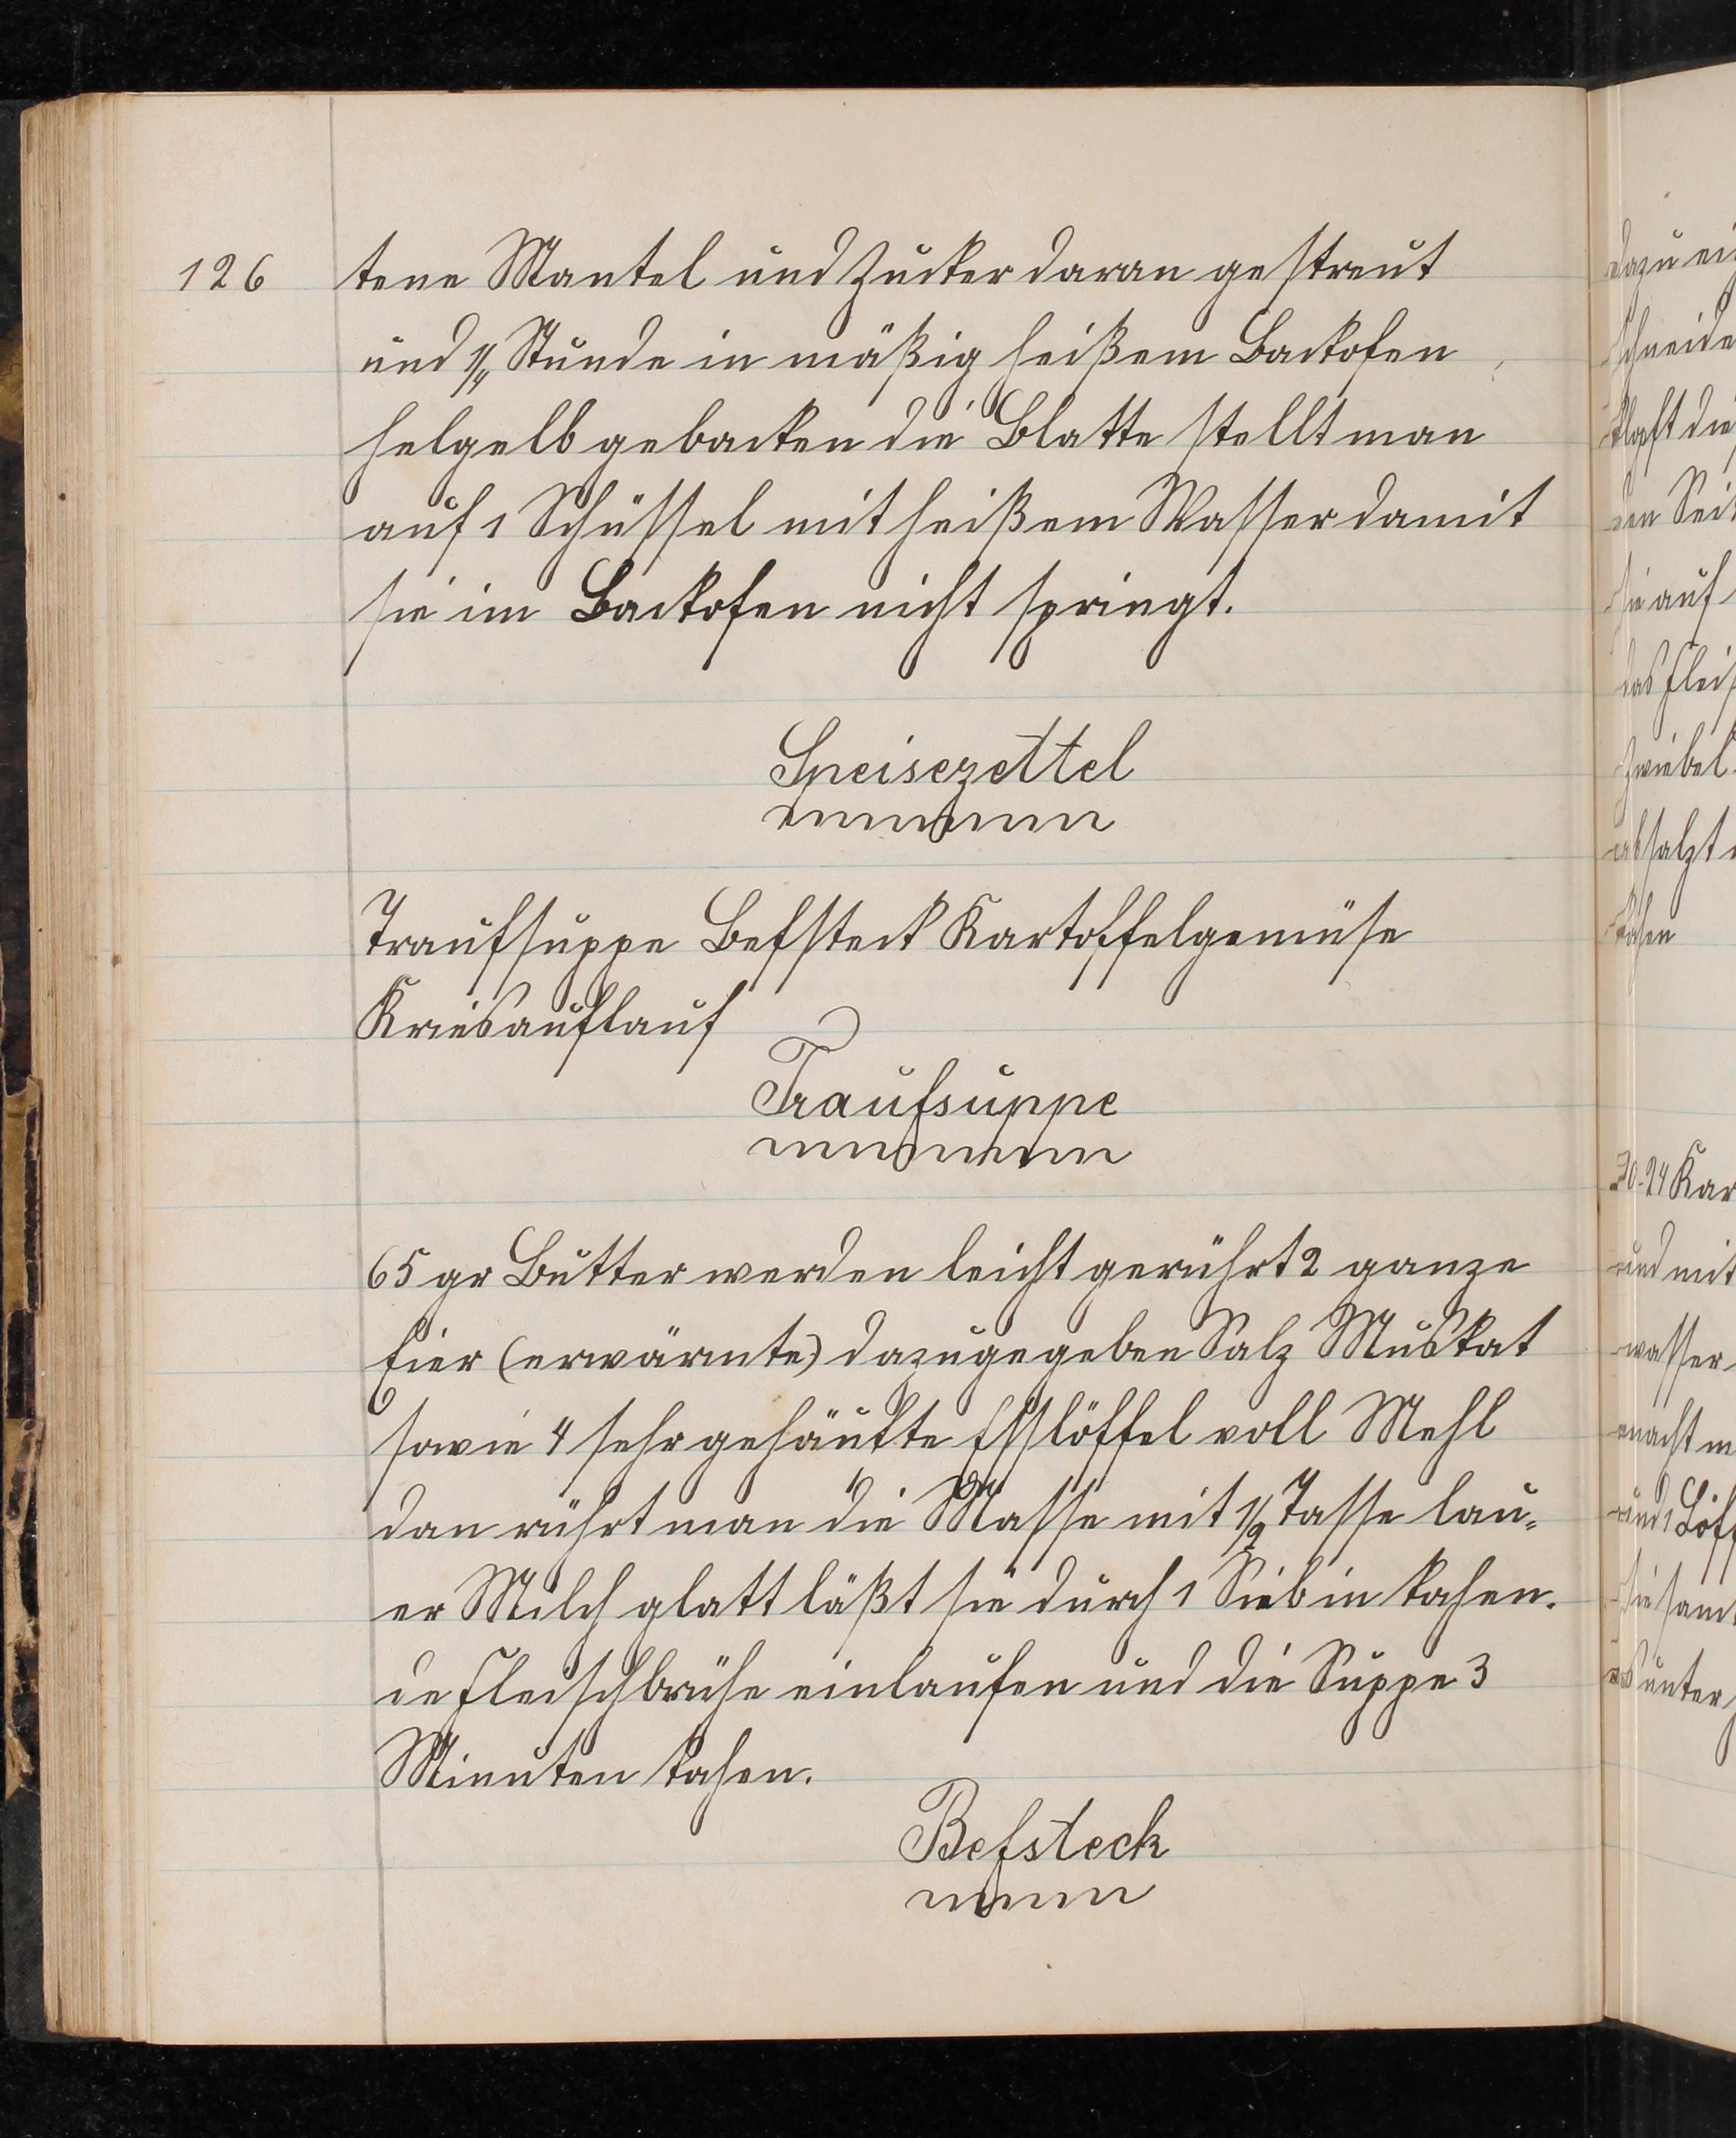 126
tene Mantel und Zucker daran gestreut
und 1/4 Stunde in mäßig heißem Backofen
helgelb gebacken die Blatte stellt man
auf 1 Schüssel mit heißem Wasser damit
sie im Backofen nicht springt.
Speisezettel
Traufsuppe Befsteck Kartoffelgemüse
Kriesauflauf
Traufsuppe
65 gr Butter werden leicht gerührt 2 ganze
Eier (erwärmte) dazugegeben Salz Muskat
sowie 4 sehr gehäufte Esslöffel voll Mehl
dan rührt man die Masse mit 1/2 Tasse lau-
er Milch glatt läßt sie durch 1 Sieb in kochen.
de Fleischbrühe einlaufen und die Suppe 3
Minuten kochen.
Befsteck
dazu ei
schneide
klopft die
den Seit
sie auf
das Fleis
Zwiebel
absalzt
20-24 Kar
und mit
wasser
macht m
und 1 Löff
sie samt
es unter